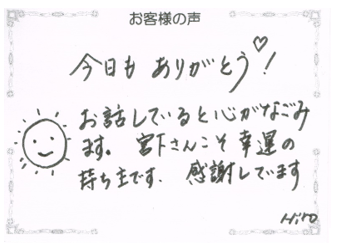 お客様の声
今日も ありがとう♡!
お話していると心がなごみ
ます。宮下さんこそ幸運の
持ち主です. 感謝しています
Hiro